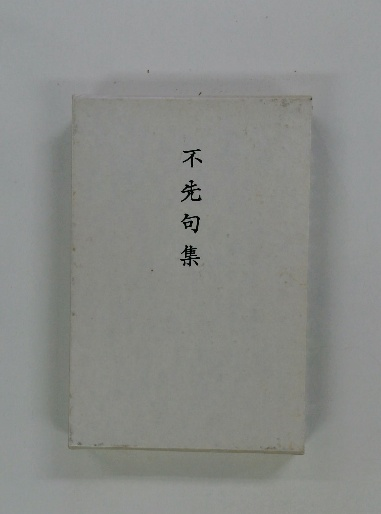 不先句集